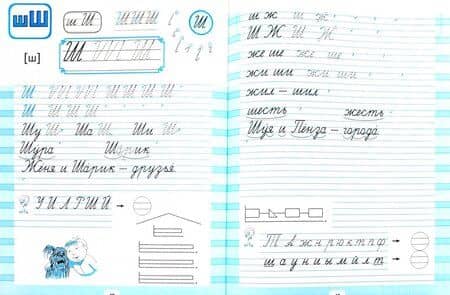 шШ
ш Ш Ш Ш Ш Ш
[ш]
Ш Ш
Ш Ш Ш Ш Ш Ш
Ш Ш Ш Ш Ш
Шу Ш Ша Ш Ши Ш
Шура Шарик
Женя и Шарик – друзья.
У И Л Г Ш Й →
ш ж ш ж
Ш Ж Ш Ж
же ше же ше
жи ши жи ши
жил – шил
шесть жесть
Шуя и Пенза – города.
Т А Ж Н Р Ю К Т П Ф →
ш а у н и ы м й л т →